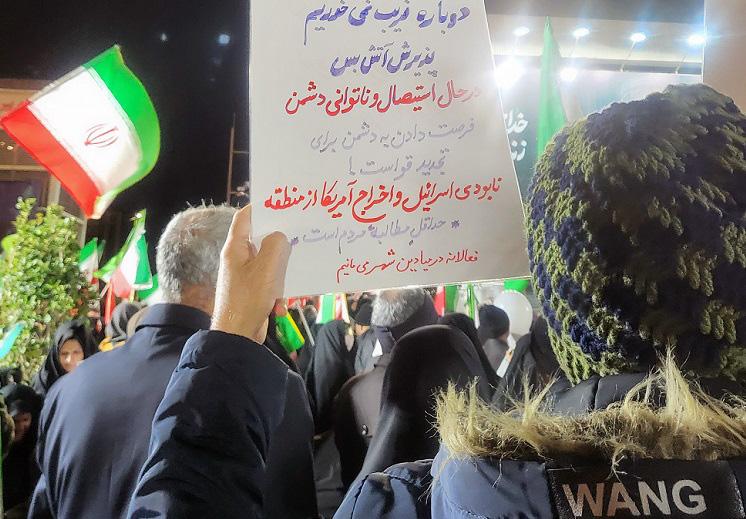 دوباره فریب نمی خوریم
پذیرش آتش بس
در حال استیصال و ناتوانی دشمن
فرصت دادن به دشمن برای
تجدید قواست!
نابودی اسرائیل و اخراج آمریکا از منطقه
* حداقل مطالبه مردم است *
فعالانه در میادین شهر می مانیم
WANG